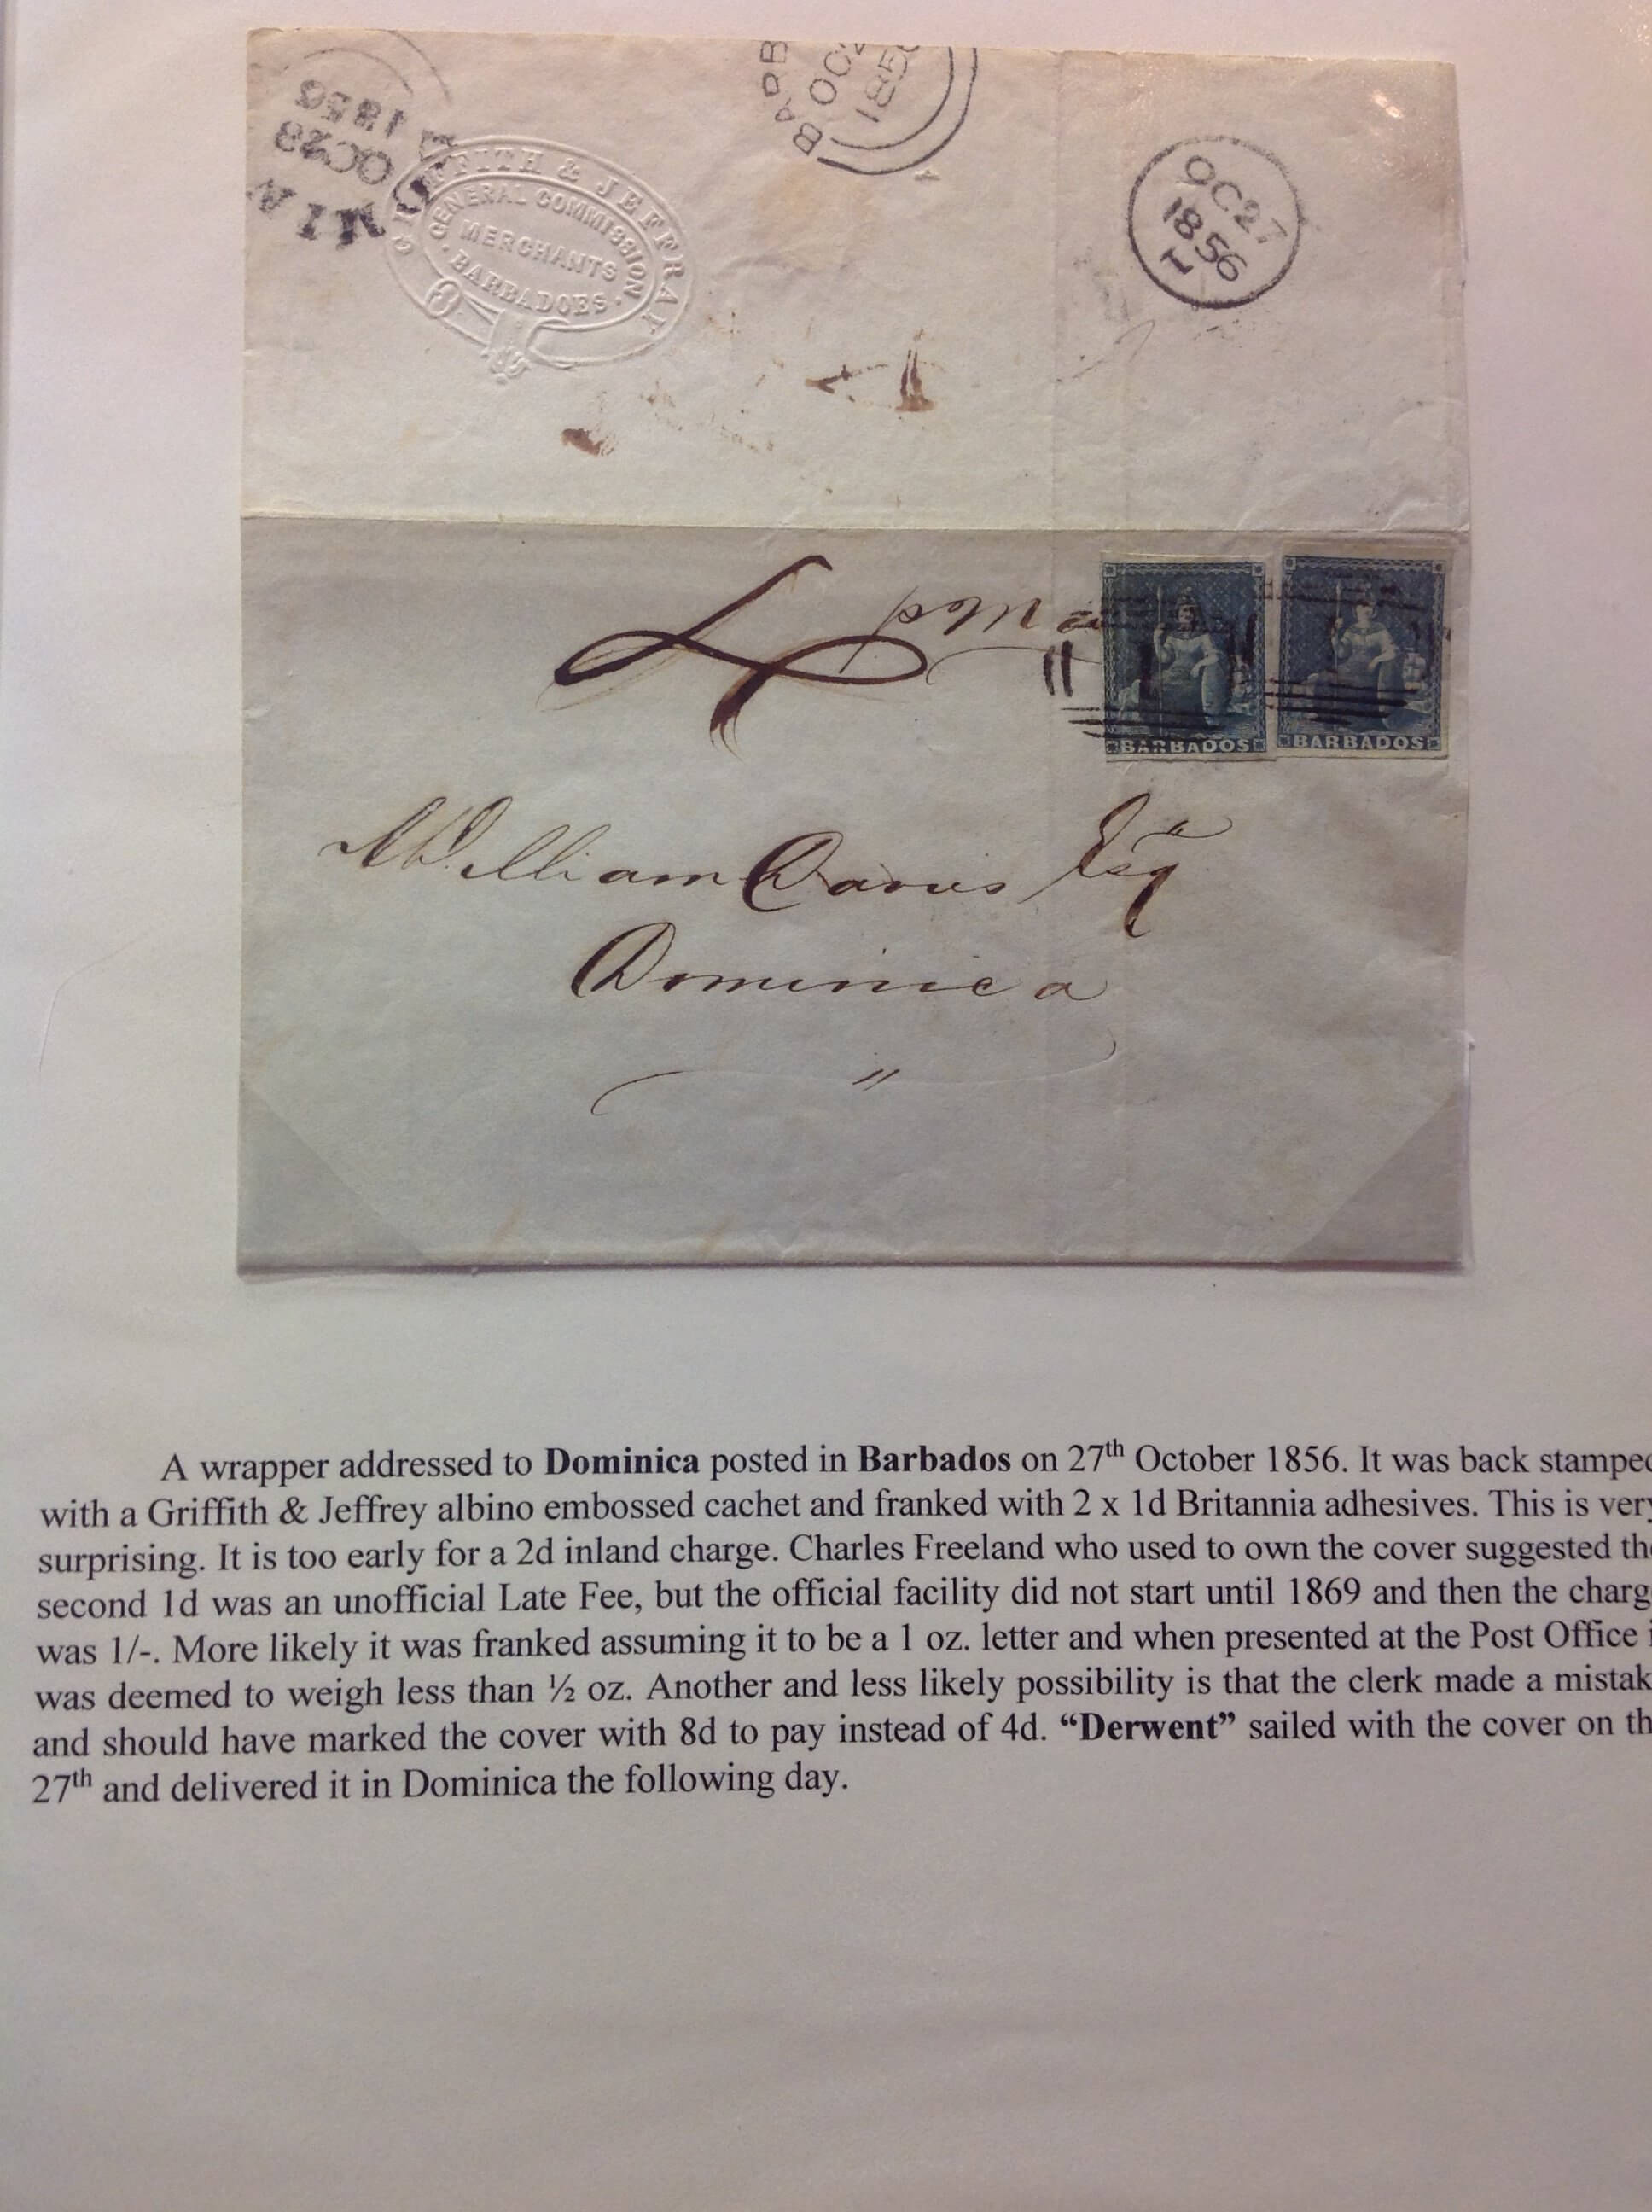 1856
OC28
MINI
GRIFFITH & JEFFRAY
GENERAL COMMISSION
MERCHANTS
BARBADOES
BARB
OC2
1856
A
OC27
1856
1
4
BARBADOS
BARBADOS
William Davies Esqr
Dominica
A wrapper addressed to Dominica posted in Barbados on 27th October 1856. It was back stamped
with a Griffith & Jeffrey albino embossed cachet and franked with 2 x 1d Britannia adhesives. This is very
surprising. It is too early for a 2d inland charge. Charles Freeland who used to own the cover suggested the
second 1d was an unofficial Late Fee, but the official facility did not start until 1869 and then the charg
was 1/-. More likely it was franked assuming it to be a 1 oz. letter and when presented at the Post Office i
was deemed to weigh less than ½ oz. Another and less likely possibility is that the clerk made a mistak
and should have marked the cover with 8d to pay instead of 4d. “Derwent” sailed with the cover on th
27th and delivered it in Dominica the following day.